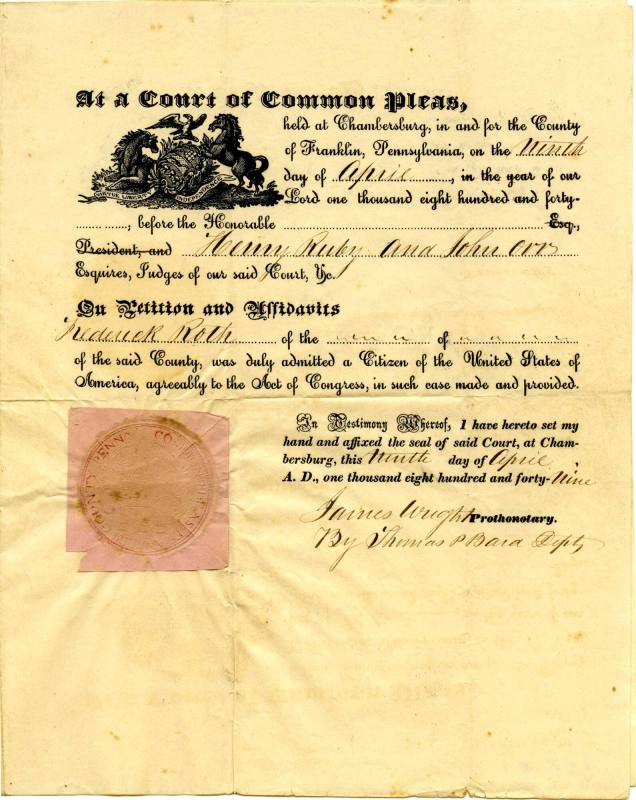 At a Court of Common Pleas,
held at Chambersburg, in and for the County
of Franklin, Pennsylvania, on the Ninth
day of April, in the year of our
Lord one thousand eight hundred and forty-
VIRTUE LIBERTY INDEPENDENCE
, before the Honorable Esq.,
President, and Henry Ruby and John Orr
Esquires, Judges of our said Court, &c.
On Petition and Affidavits
Frederick Roth of the of
of the said County, was duly admitted a Citizen of the United States of
America, agreeably to the Act of Congress, in such case made and provided.
In Testimony Whereof, I have hereto set my
hand and affixed the seal of said Court, at Cham-
bersburg, this Ninth day of April,
A. D., one thousand eight hundred and forty-Nine
James Wright Prothonotary.
By Thomas P Bard Depty